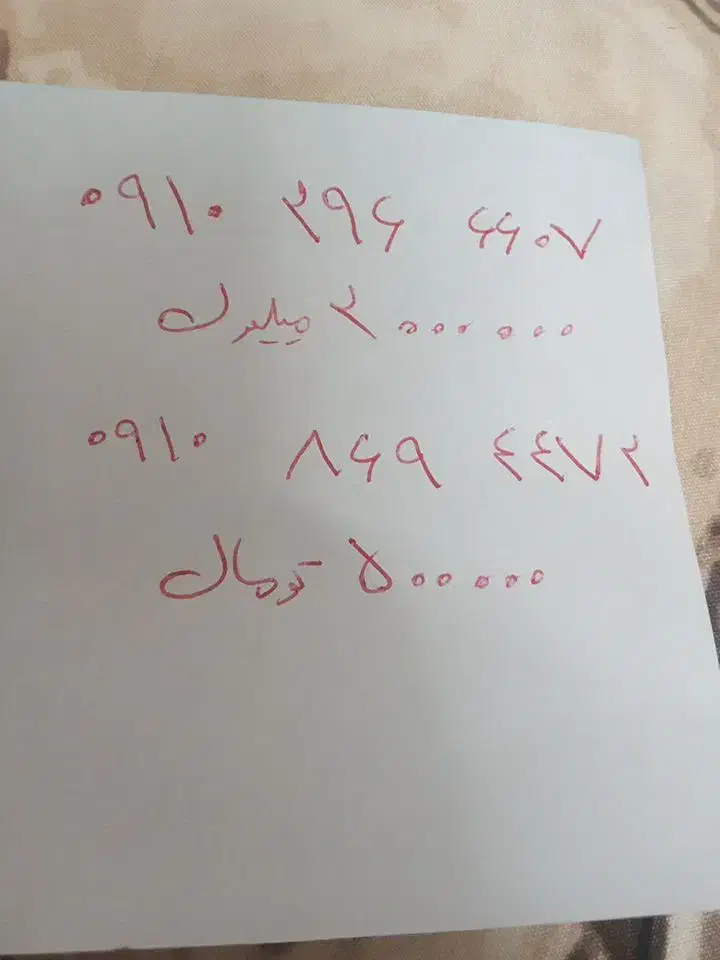 ۰۹۱۰ ۲۹۶ ۶۶۰۷
۲۰۰۰۰۰۰ میلیون
۰۹۱۰ ۸۶۹ ۴۴۷۲
۵۰۰۰۰۰ تومان